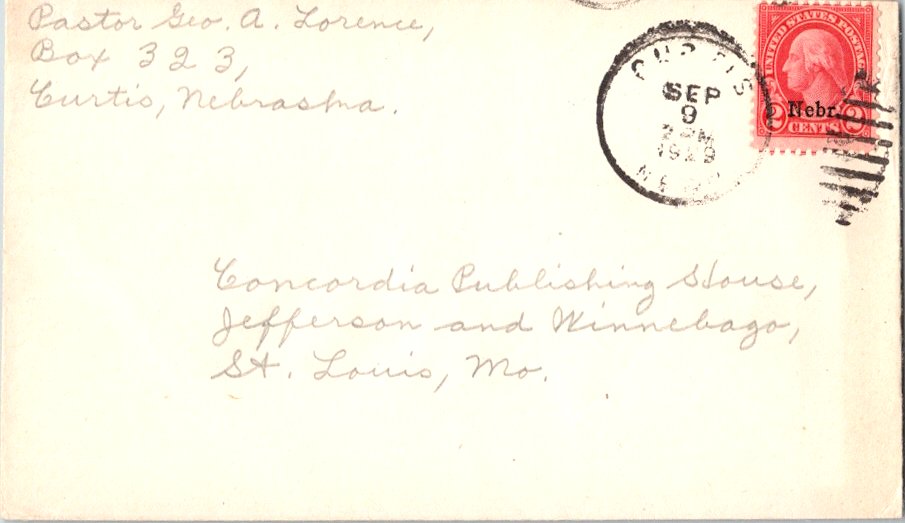 Pastor Geo. A. Lorence,
Box 323,
Curtis, Nebraska.
SEP
9
2 PM
1929
UNITED STATES POSTAGE
Nebr.
2 CENTS 2
Concordia Publishing House,
Jefferson and Winnebago,
St. Louis, Mo.